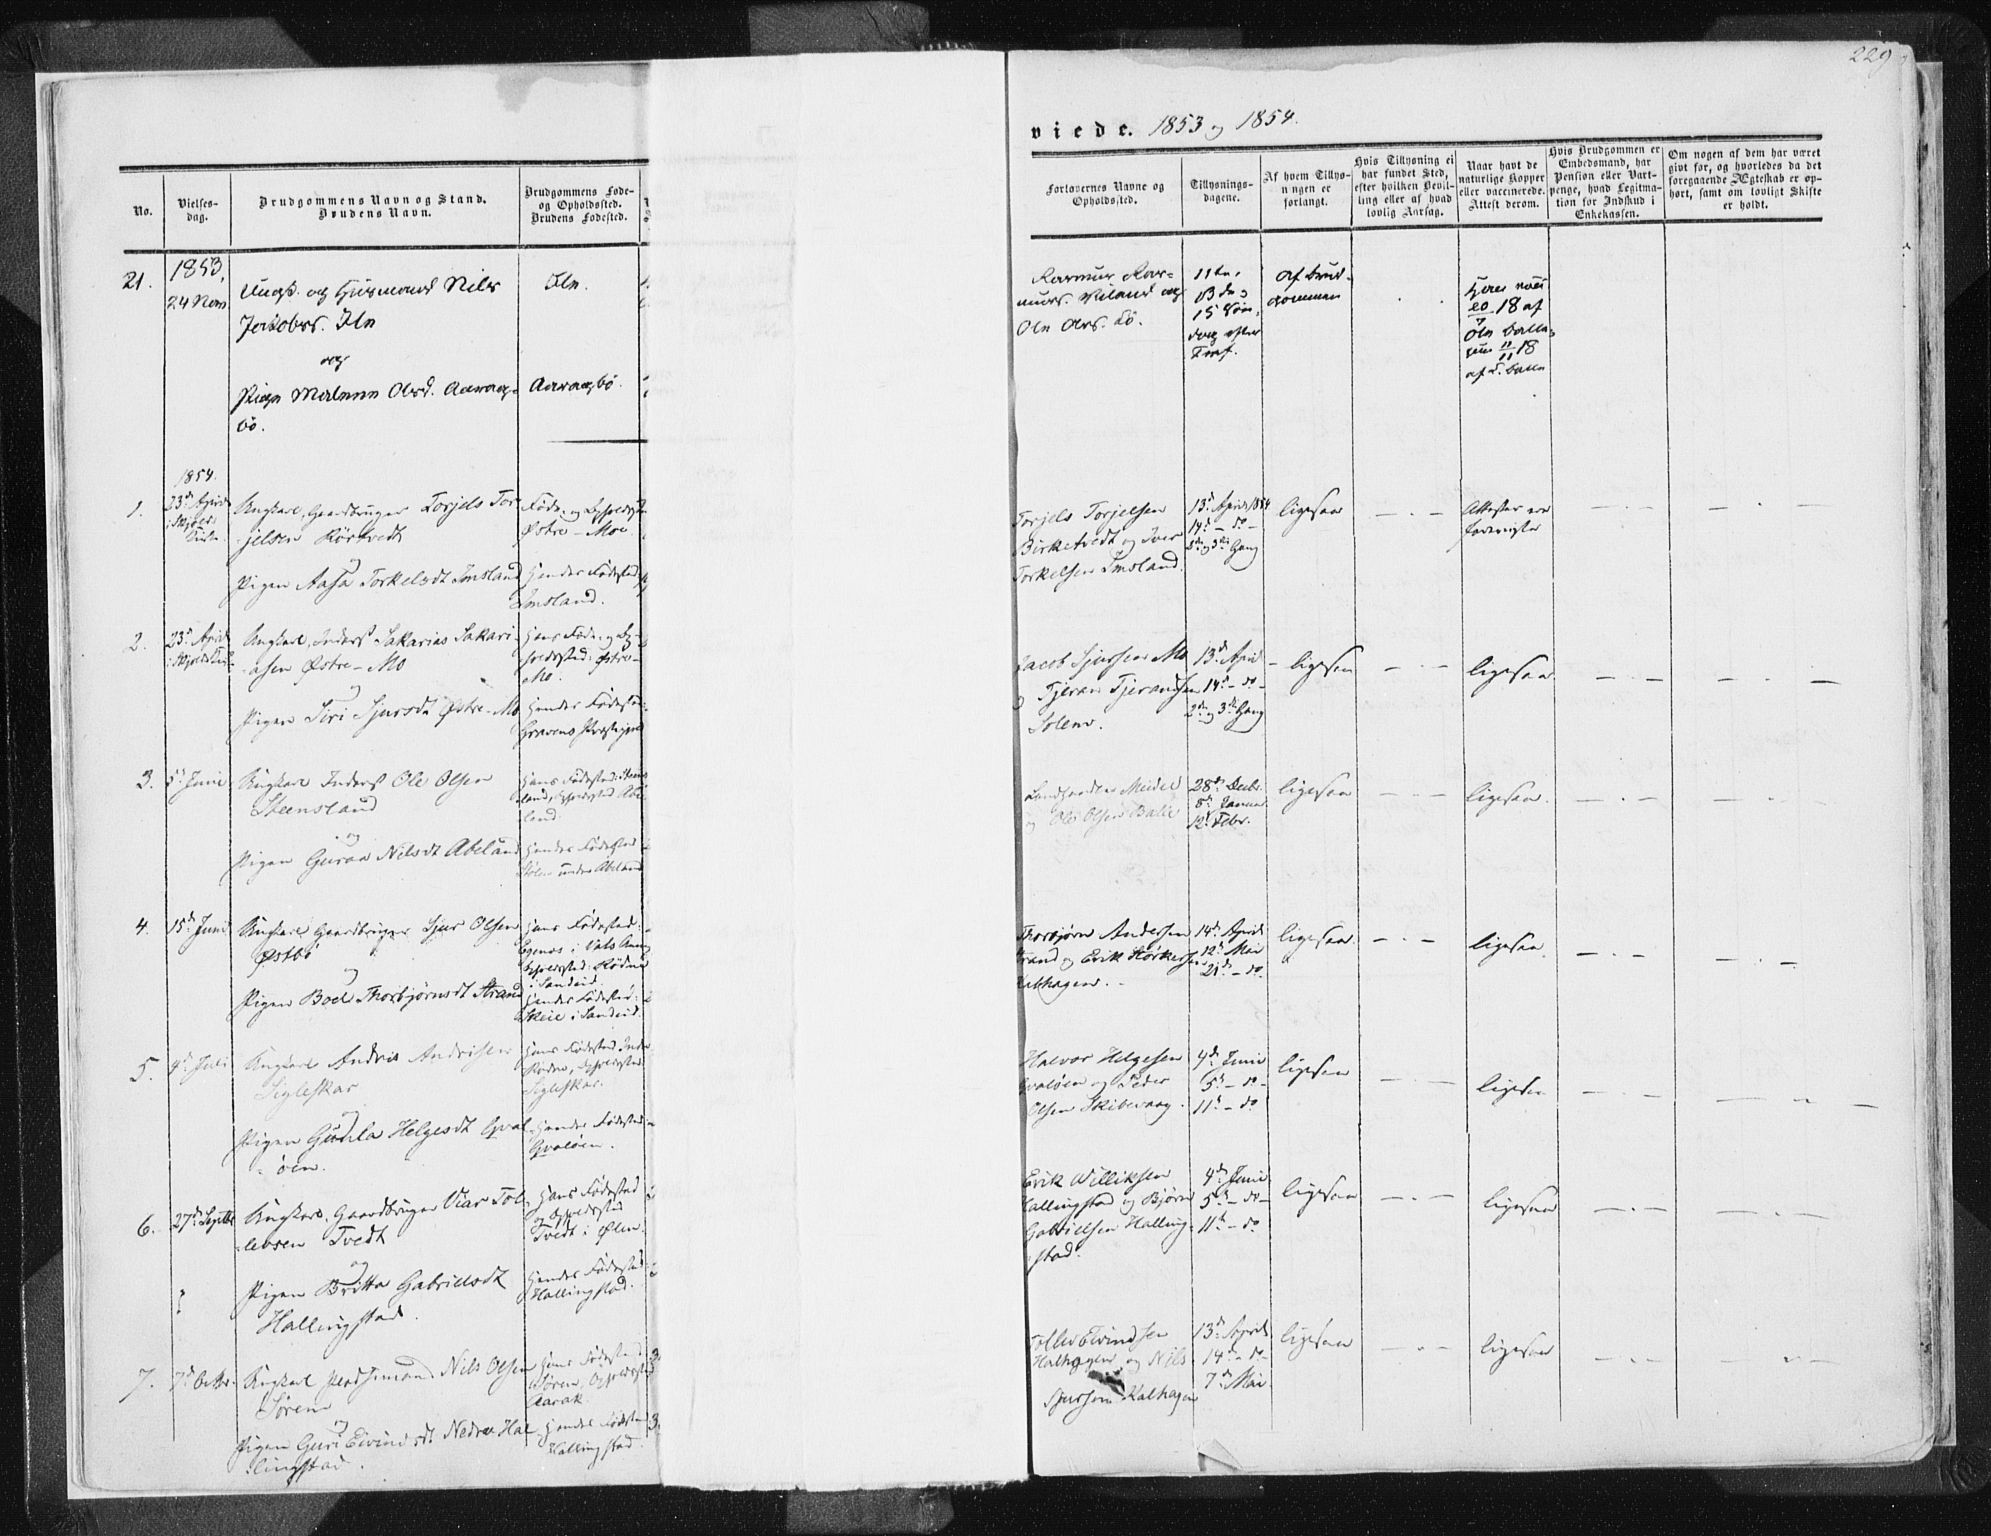 229
viede. 1853 og 1854.
No.
Vielses-
dag.
Brudgommens Navn og Stand.
Brudens Navn.
Brudgommens Føde-
og Opholdssted.
Brudens Fødested.
Forlovernes Navne og
Opholdssted.
Tillysnings-
dagene.
Af hvem Tillys-
ningen er
forlangt.
Hvis Tillysning ei
har fundet Sted,
efter hvilken Bevil-
ling eller af hvad
lovlig Aarsag.
Naar havt de
naturlige Kopper
eller vaccinerede.
Attest derom.
Hvis Brudgommen er
Embedsmand, har
Pension eller Vart-
penge, hvad Legitima-
tion for Indskud i
Enkekassen.
Om nogen af dem har været
givt for, og hvorledes da det
foregaaende Ægteskab er op-
hørt, samt om lovligt Skifte
er holdt.
21.
1853,
24 Nov.
Ungk. og Huusmand Nils
Jakobs. Øln
og
Pigen Malene Olsd. Aarag-
bø.
Øln.
Aaragbø.
Rasmus Ras-
muss. Viland og
Ole Ols. Bø.
11te,
13de og
15 Søn-
dag efter
Tref.
Af Brud-
gommen
18 af
11/11 18
1854.
1.
23d April
i Skjold
Kirke.
Ungkarl, Gaardbruger Torjels Tor-
jelsen Rörtvedt
og
Pigen Aasa Torkelsdt Imsland
Føde- og Opholdssted
Østre-Moe.
Hendes Fødested
Imsland.
Torjels Torjelsen
Birketvedt og Iver
Torkelsen Imsland.
13d April 1854
14d - do -
2den og 3die Gang
ligesaa
Attester ere
foreviste
2.
23d April
i Skjold Kirke
Ungkarl, Inderst Sakarias Sakari-
asen Østre-Mo
og
Pigen Siri Sjursdt Østre-Mo
Hans Føde- og Op-
holdssted: Østre-
Mo.
Hendes Fødested:
Gravens Præstegjeld
Jacob Sjursen Mo
og Tjeran Tjerandsen
Solem.
13d April
14d - do -
2den og 3die Gang
ligesaa
ligesaa
3.
5d Juni
Ungkarl Inderst Ole Olsen
Steensland
og
Pigen Guroa Nilsdt Abeland
Hans Fødested: Steens-
land, Opholdssted Abe-
land.
Hendes Fødested
Stølen under Abeland
Landhandler Meidel
og Ole Olsen Balie
28d Decbr.
8d Januar
12d Febr.
ligesaa
ligesaa.
4.
15d Juni
Ungkarl Gaardbruger Sjur Olsen
Østbö
og
Pigen Boel Thorbjørnsdt Strand
Hans Fødested:
Egenes i Vats Annex
Opholdssted: Rödne
i Sandeid.
Hendes Fødested:
Skeie i Sandeid.
Thorbjørn Andersen
Strand og Erik Størkersen
Kalhagen.
14d April
12d Mai
21d - do.
ligesaa
ligesaa.
5.
4d Juli
Ungkarl Andris Andrisen
Sigleskar
og
Pigen Gunla Helgesdt Qval-
öen.
Hans Fødested Indre
Rödne, Opholdssted
Sigleskar.
Hendes Fødested
Qvalöen.
Halvor Helgesen
Qvalöen og Peder
Olsen Skibevaag.
4d Juni
5d - do -
11d - do
ligesaa
ligesaa
6.
27d Septbr
Ungkarl, Gaardbruger Viar Tol-
levsen Tvedt
og
Pigen Britta Gabrielsdt
Hallingstad.
Hans Fødested
og Opholdssted
Tvedt i Ølen.
Hendes Fødested
Hallingstad.
Erik Williksen
Hallingstad og Bjørn
Gabrielsen Halling-
stad.
4d Juni
5d - do -
11d - do
ligesaa
ligesaa
7.
7d Octbr.
Ungkarl Pladsmand Nils Olsen
Sørem
og
Pigen Guri Eivindsdt Nedre Hal-
lingstad.
Hans Fødested
Sörem, Opholdssted
Aarak
Hendes Fødested
Hallingstad.
Tollev Eivindsen
Kalhagen og Nils
Sjursen Kalhagen
13d April
14d - do -
7d Mai.
ligesaa
ligesaa